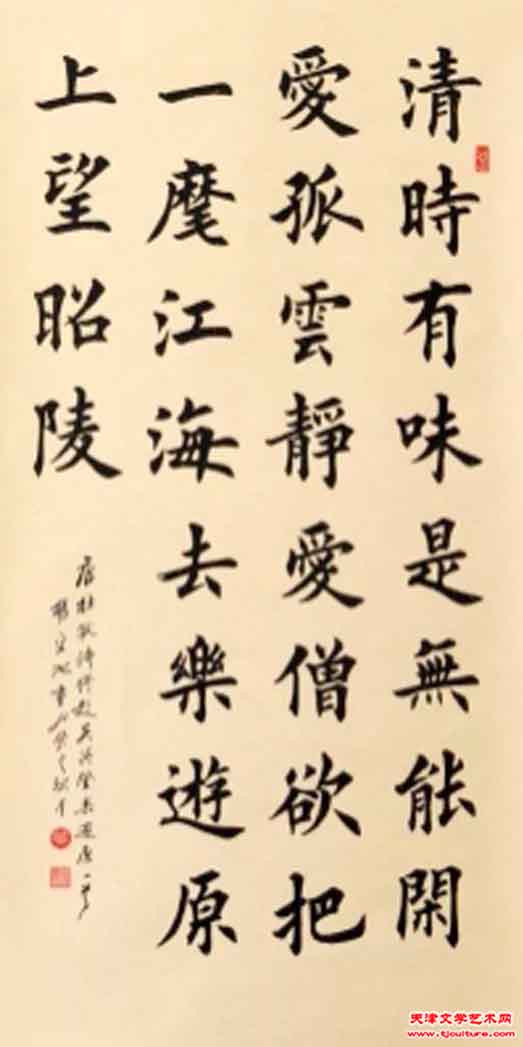 清時有味是無能閑
愛孤雲靜愛僧欲把
一麾江海去樂遊原
上望昭陵
唐杜牧詩將赴吳興登樂遊原一首
天津文学艺术网
www.tjculture.com